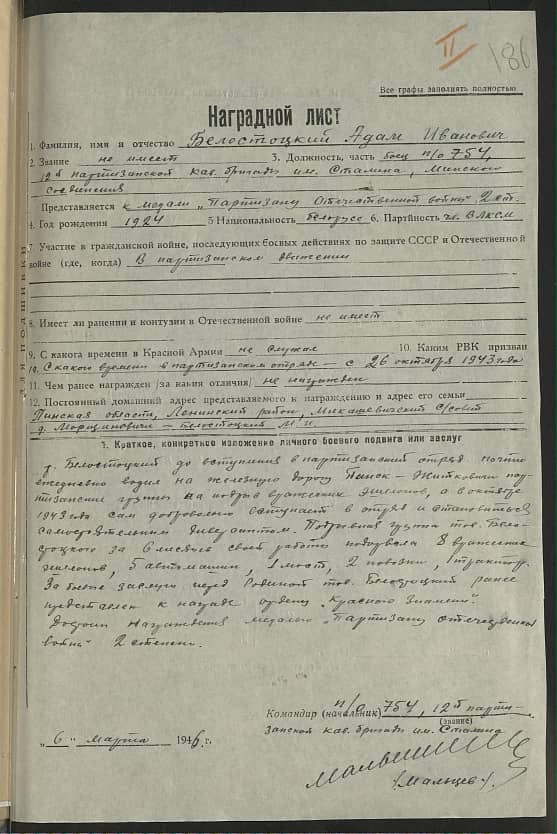 II 186
Все графы заполнять полностью
Наградной лист
1. Фамилия, имя и отчество Белостоцкий Адам Иванович
2. Звание не имеет 3. Должность, часть боец п/о 754,
12й партизанской кав. бригады им. Сталина, Минского
соединения
Представляется к медали „Партизану Отечественной войны" 2 ст.
4. Год рождения 1924 5 Национальность белорусс 6. Партийность чл. ВЛКСМ
7. Участие в гражданской войне, последующих боевых действиях по защите СССР и Отечественной
войне (где, когда) В партизанском движении
8. Имеет ли ранении и контузии в Отечественной войне не имеет
9. С какога времени в Красной Армии не служил 10. Каким РВК призван
10. С какого времени в партизанском отряде — с 26 октября 1943 года
11. Чем ранее награжден /за какия отличия/ не награжден
12. Постоянный домашний адрес представляемого к награждению и адрес его семьи
Пинская область, Ленинский район, Микашевичский с/совет
д. Морщиновичи – Белостоцкий М. И.
1. Краткое, конкретное изложение личного боевого подвига или заслуг
т. Белостоцкий до вступления в партизанский отряд почти
ежедневно водил на железную дорогу Пинск – Житковичи пар-
тизанские группы на подрыв вражеских эшелонов, а в октябре
1943 года сам добровольно вступает в отряд и становиться
самостоятельным диверсантом. Подрывная группа тов. Бело-
стоцкого за 6 месяцев своей работы подорвала 8 вражеских
эшелонов, 5 автомашин, 1 мост, 2 повозки, 1 трактор.
За боевые заслуги перед Родиной тов. Белостоцкий ранее
представлен к награде ордену „Красного Знамени".
Достоин награждения медалью „Партизану отечественной
войны" 2 степени.
Командир (начальник) п/о 754, 12й парти-
(звание)
занской кав. бригады им. Сталина
„6" марта 1946 г.
/Мальцев/.
для подшивки